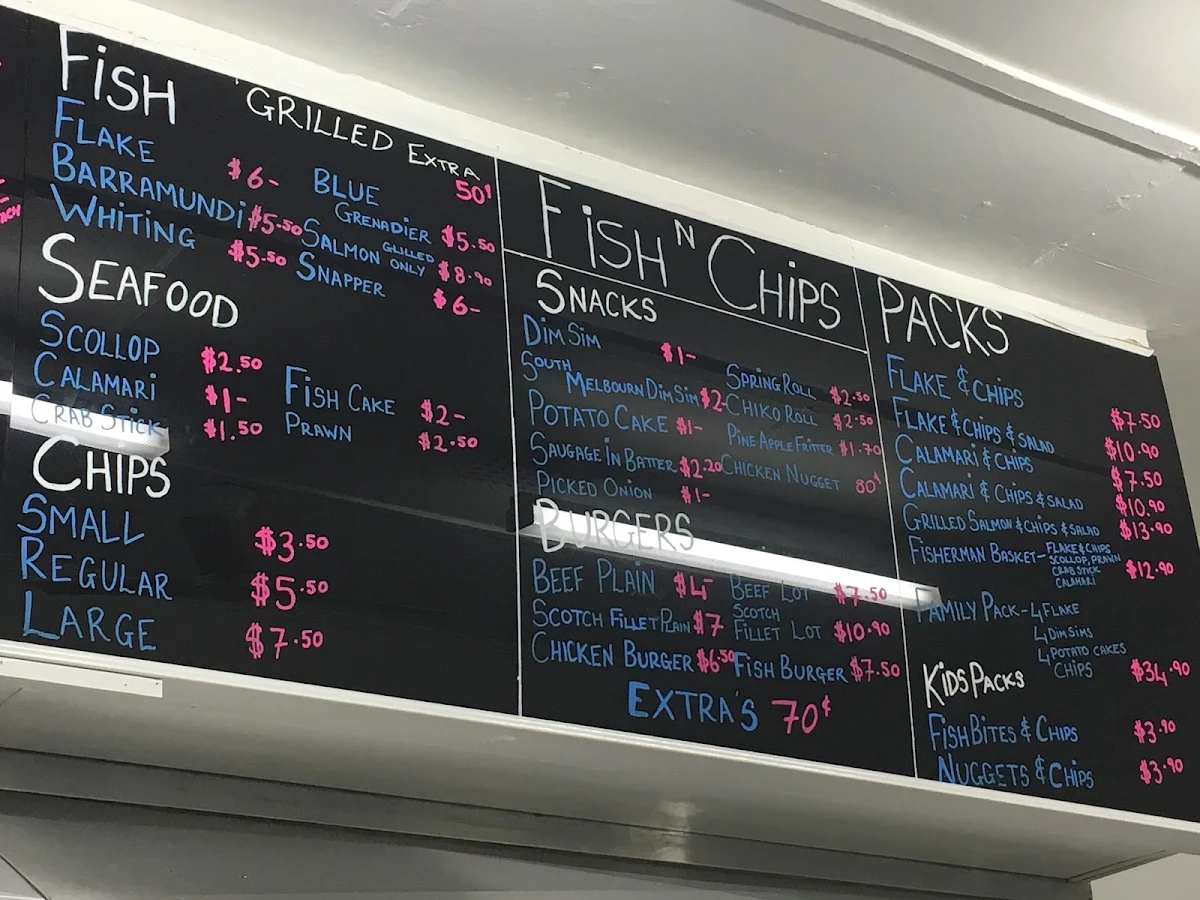 FISH
'GRILLED EXTRA 50¢
FLAKE $6-
BARRAMUNDI $5.50
WHITING $5.50
BLUE GRENADIER $5.50
SALMON GLILLED ONLY $8.90
SNAPPER $6-
SEAFOOD
SCOLLOP $2.50
CALAMARI $1-
CRAB STICK $1.50
FISH CAKE $2-
PRAWN $2.50
CHIPS
SMALL $3.50
REGULAR $5.50
LARGE $7.50
FISH N CHIPS
SNACKS
DIM SIM $1-
SOUTH MELBOURN DIM SIM $2-
POTATO CAKE $1-
SAUGAGE IN BATTER $2.20
PICKED ONION $1-
SPRING ROLL $2.50
CHIKO ROLL $2.50
PINE APPLE FRITTER $1.70
CHICKEN NUGGET 80¢
BURGERS
BEEF PLAIN $4-
SCOTCH FILLET PLAIN $7
CHICKEN BURGER $6.50
BEEF LOT $7.50
SCOTCH FILLET LOT $10.90
FISH BURGER $7.50
EXTRA'S 70¢
PACKS
FLAKE & CHIPS $7.50
FLAKE & CHIPS & SALAD $10.90
CALAMARI & CHIPS $7.50
CALAMARI & CHIPS & SALAD $10.90
GRILLED SALMON & CHIPS & SALAD $13.90
FISHERMAN BASKET- FLAKE & CHIPS
SCOLLOP, PRAWN
CRAB STICK
CALAMARI $12.90
FAMILY PACK- 4 FLAKE
4 DIM SIMS
4 POTATO CAKES
CHIPS $34.90
KIDS PACKS
FISH BITES & CHIPS $3.90
NUGGETS & CHIPS $3.90